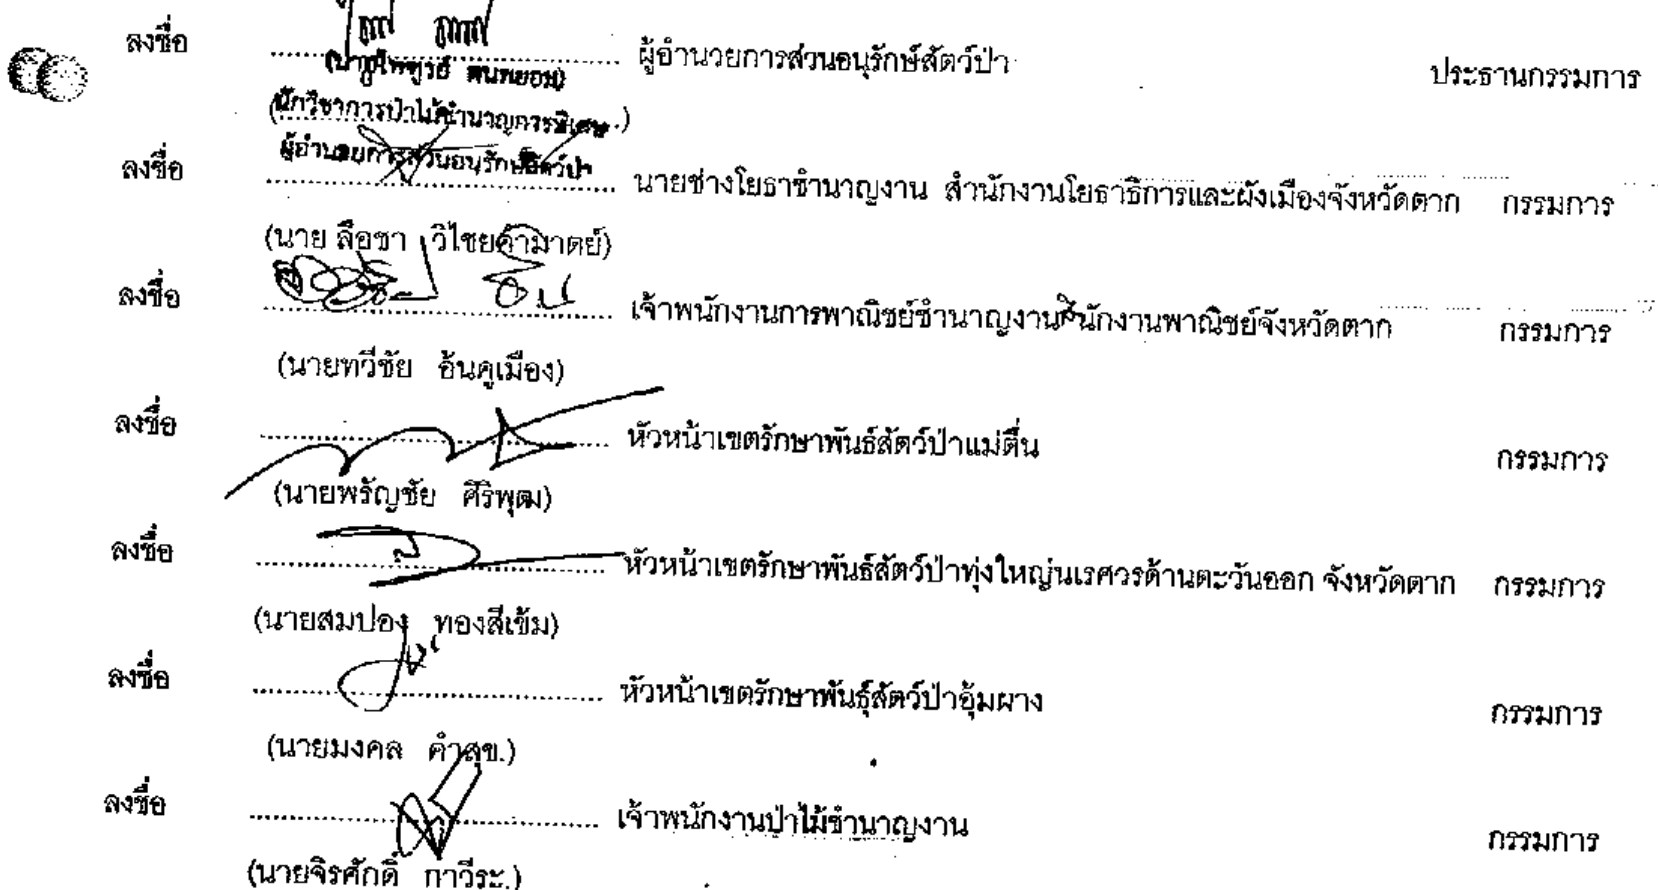 ลงชื่อ .......................... ผู้อำนวยการส่วนอนุรักษ์สัตว์ป่า ประธานกรรมการ
(นักวิชาการป่าไม้ชำนาญการพิเศษ)
ผู้อำนวยการส่วนอนุรักษ์สัตว์ป่า
ลงชื่อ .......................... นายช่างโยธาชำนาญงาน สำนักงานโยธาธิการและผังเมืองจังหวัดตาก กรรมการ
(นาย ลือชา วิไชยคำมาตย์)
ลงชื่อ .......................... เจ้าพนักงานการพาณิชย์ชำนาญงานสำนักงานพาณิชย์จังหวัดตาก กรรมการ
(นายทวีชัย อ้นคูเมือง)
ลงชื่อ .......................... หัวหน้าเขตรักษาพันธ์สัตว์ป่าแม่ตื่น กรรมการ
(นายพรัญชัย ศิริพุฒ)
ลงชื่อ .......................... หัวหน้าเขตรักษาพันธ์สัตว์ป่าทุ่งใหญ่นเรศวรด้านตะวันออก จังหวัดตาก กรรมการ
(นายสมปอง ทองสีเข้ม)
ลงชื่อ .......................... หัวหน้าเขตรักษาพันธุ์สัตว์ป่าอุ้มผาง กรรมการ
(นายมงคล คำสุข.)
ลงชื่อ .......................... เจ้าพนักงานป่าไม้ชำนาญงาน กรรมการ
(นายจิรศักดิ์ กาวีระ.)